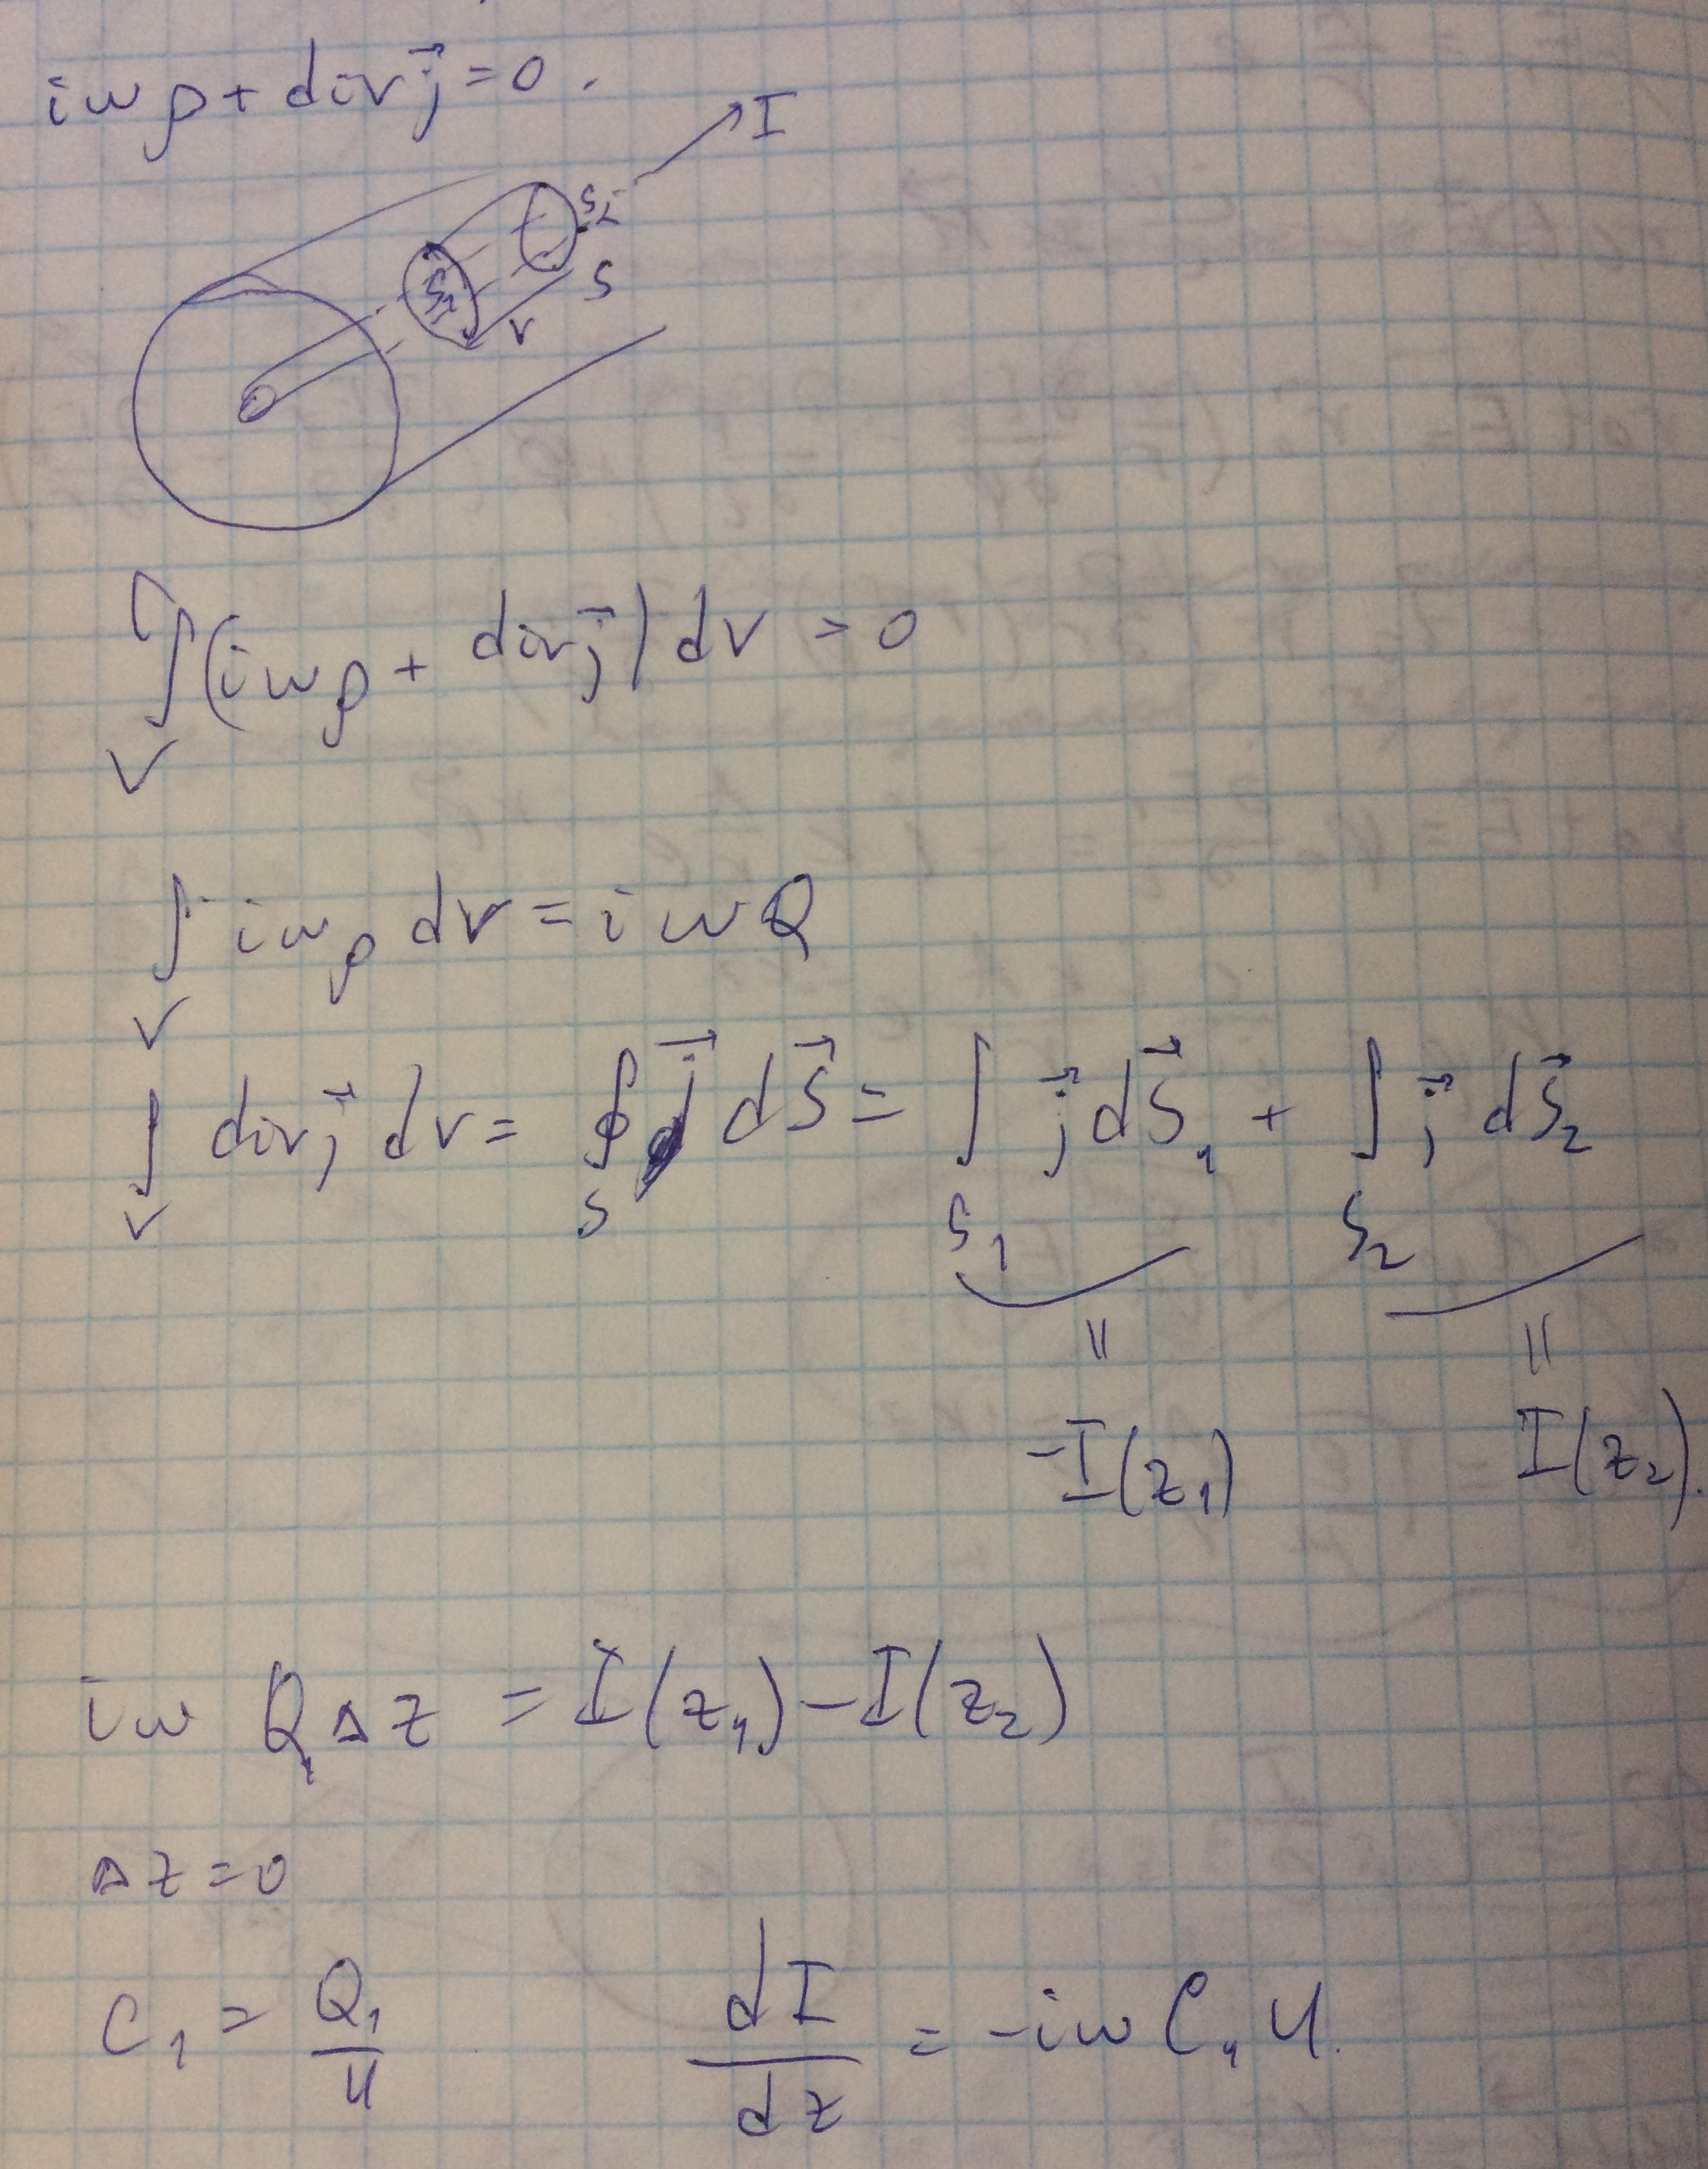 iωρ + div j⃗ = 0.
I
S₂
S₁
S
V
∫(iωρ + div j⃗) dv = 0
V
∫ iωρ dv = iωQ
V
∫ div j⃗ dv = ∮ j⃗ dS⃗ = ∫ j⃗ dS⃗₁ + ∫ j⃗ dS⃗₂
V S S₁ S₂
|| ||
-I(z₁) I(z₂).
iω Q₁ Δz = I(z₁) - I(z₂)
Δz = 0
C₁ = Q₁/U dI/dz = -iω C₁ U.